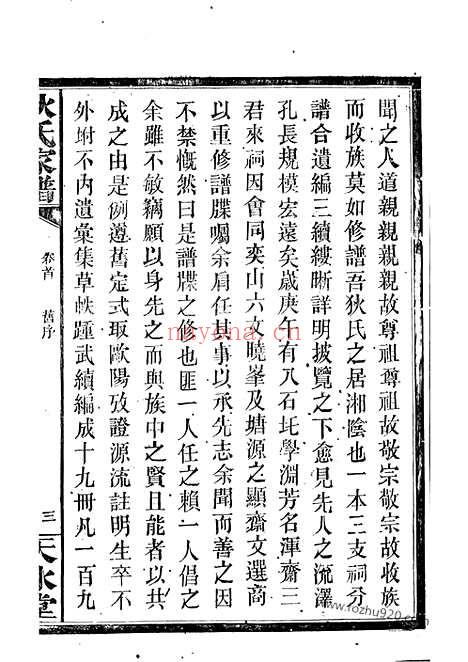 聞之人道親親親親故尊祖尊祖故敬宗敬宗故收族
而收族莫如修譜吾狄氏之居湘陰也一本三支祠分
譜合遺編三續縷晰詳明披覽之下愈見先人之流澤
孔長規模宏遠矣歲庚午有八石圫學淵芳名渾齋三
君來祠因會同奕山六文曉峯及塘源之顯齋文選商
以重修譜牒囑余肩任其事以承先志余聞而善之因
不禁慨然曰是譜牒之修也匪一人任之賴一人倡之
余雖不敏竊願以身先之而與族中之賢且能者以共
成之由是例遵舊定式取歐陽攷證源流註明生卒不
外坿不内遺彙集草帙踵武續編成十九冊凡一百九
狄氏家譜
卷首
舊序
三
天水堂
nayona.cn
www.rozhu920.com